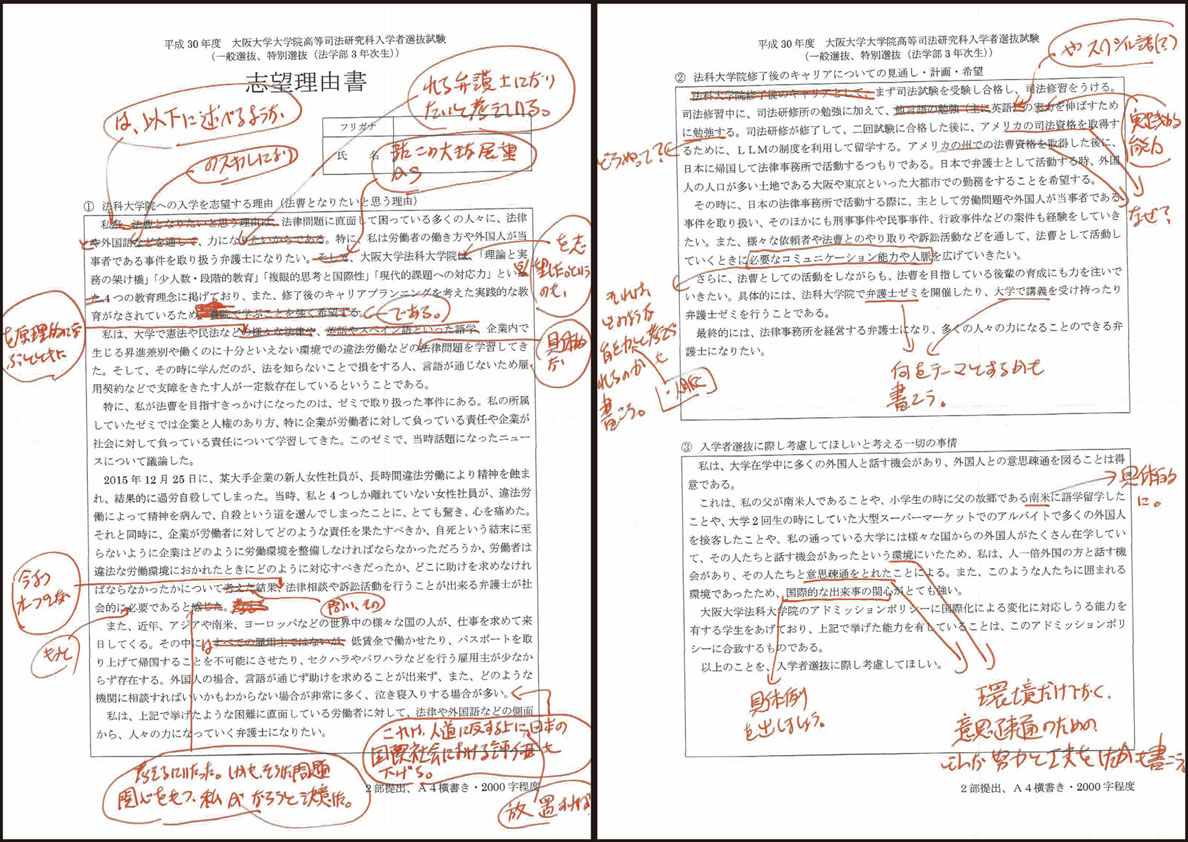 平成30年度 大阪大学大学院高等司法研究科入学者選抜試験
(一般選抜、特別選抜(法学部3年次生))
志望理由書
は、以下に述べるような
れる弁護士になり
たいと考えている。
のスキルにより
フリガナ
氏 名
① 法科大学院への入学を志望する理由(法曹となりたいと思う理由)
私が、法曹となりたいと思う理由は、法律問題に直面して困っている多くの人々に、法律
や外国語などを通して、力になりたいからである。特に、私は労働者の働き方や外国人が当
事者である事件を取り扱う弁護士になりたい。そして、大阪大学法科大学院は、「理論と実
務の架け橋」「少人数・段階的教育」「複眼的思考と国際性」「現代的課題への対応力」とい
た4つの教育理念に掲げており、また、修了後のキャリアプランニングを考えた実践的な教
育がなされているため、 学院で学ぶことを強く希望する。
である。
具体的
私は、大学で憲法や民法など 様々な法律や、英語やスペイン語といった語学、企業内で
生じる昇進差別や働くのに十分といえない環境での違法労働などの法律問題を学習してき
た。そして、その時に学んだのが、法を知らないことで損をする人、言語が通じないため雇
用契約などで支障をきたす人が一定数存在しているということである。
特に、私が法曹を目指すきっかけになったのは、ゼミで取り扱った事件にある。私の所属
していたゼミでは企業と人権のあり方、特に企業が労働者に対して負っている責任や企業が
社会に対して負っている責任について学習してきた。このゼミで、当時話題になったニュー
スについて議論した。
2015年12月25日に、某大手企業の新人女性社員が、長時間違法労働により精神を蝕ま
れ、結果的に過労自殺してしまった。当時、私と4つしか離れていない女性社員が、違法労
働によって精神を病んで、自殺という道を選んでしまったことに、とても驚き、心を痛めた。
それと同時に、企業が労働者に対してどのような責任を果たすべきか、自死という結末に至
らないように企業はどのように労働環境を整備しなければならなかっただろうか、労働者は
違法な労働環境におかれたときにどのように対応すべきだったか、どこに助けを求めなけれ
ばならなかったかについて考えた結果、法律相談や訴訟活動を行うことが出来る弁護士が社
会的に必要であると感じた。
また、近年、アジアや南米、ヨーロッパなどの世界中の様々な国の人が、仕事を求めて来
日してくる。その中には すべての雇用主ではないが、低賃金で働かせたり、パスポートを取
り上げて帰国することを不可能にさせたり、セクハラやパワハラなどを行う雇用主が少なか
らず存在する。外国人の場合、言語が通じず助けを求めることが出来ず、また、どのような
機関に相談すればいいかもわからない場合が非常に多く、泣き寝入りする場合が多い。
私は、上記で挙げたような困難に直面している労働者に対して、法律や外国語などの側面
から、人々の力になっていく弁護士になりたい。
これは、人道に反する上に、日本の
国際社会における評価も
下げる。
考えるにいたった。しかも、そうした問題
関心をもつ私がなろうと決意した。
2部提出、A4横書き・2000字程度
放置すれば
平成30年度 大阪大学大学院高等司法研究科入学者選抜試験
(一般選抜、特別選抜(法学部3年次生))
② 法科大学院修了後のキャリアについての見通し・計画・希望
法科大学院修了後のキャリアとして、まず司法試験を受験し合格し、司法修習をうける。
司法修習中に、司法研修所の勉強に加えて、他言語の勉強(主に英語)の実力を伸ばすため
に勉強する。司法研修が修了して、二回試験に合格した後に、アメリカの司法資格を取得す
るために、LLMの制度を利用して留学する。アメリカの州での法曹資格を取得した後に、
日本に帰国して法律事務所で活動するつもりである。日本で弁護士として活動する時、外国
人の人口が多い土地である大阪や東京といった大都市での勤務をすることを希望する。
その時に、日本の法律事務所で活動する際に、主として労働問題や外国人が当事者である
事件を取り扱い、そのほかにも刑事事件や民事事件、行政事件などの案件も経験をしていき
たい。また、様々な依頼者や法曹とのやり取りや訴訟活動などを通して、法曹として活動し
ていくときに必要なコミュニケーション能力や人脈を広げていきたい。
さらに、法曹としての活動をしながらも、法曹を目指している後輩の育成にも力を注いで
いきたい。具体的には、法科大学院で弁護士ゼミを開催したり、大学で講義を受け持ったり
弁護士ゼミを行うことである。
最終的には、法律事務所を経営する弁護士になり、多くの人々の力になることのできる弁
護士になりたい。
どうやって?
なぜ?
何をテーマとするかも
書こう。
③ 入学者選抜に際し考慮してほしいと考える一切の事情
私は、大学在学中に多くの外国人と話す機会があり、外国人との意思疎通を図ることは得
意である。
これは、私の父が南米人であることや、小学生の時に父の故郷である南米に語学留学した
ことや、大学2回生の時にしていた大型スーパーマーケットでのアルバイトで多くの外国人
を接客したことや、私の通っている大学には様々な国からの外国人がたくさん在学してい
て、その人たちと話す機会があったという環境にいたため、私は、人一倍外国の方と話す機
会があり、その人たちと意思疎通をとれたことによる。また、このような人たちに囲まれる
環境であったため、国際的な出来事の関心がとても強い。
大阪大学法科大学院のアドミッションポリシーに国際化による変化に対応しうる能力を
有する学生をあげており、上記で挙げた能力を有していることは、このアドミッションポリ
シーに合致するものである。
以上のことを、入学者選抜に際し考慮してほしい。
具体的
に。
具体例
を出しましょう。
環境だけでなく、
意思疎通のための
どんな努力や工夫をしたかも書こう
2部提出、A4横書き・2000字程度